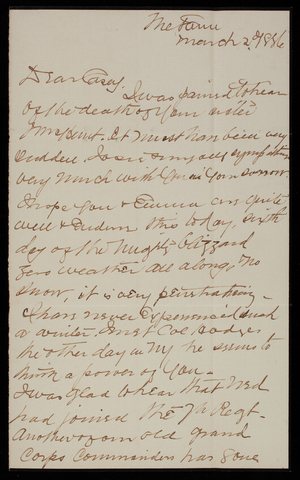 The Farm
March 2d 1886
Dear Casey,
I was pained to hear
of the death of your sister
Mrs It must have been very
sudden. I and my all sympathize
very much with you in your sorrow.
I hope you & Emma are quite
well & endure this to day, sixth
day of the mighty blizzard
Zero weather all along, no
snow, it is very penetrating -
I have never experienced such
a winter. I met Col
the other day in NY he seems to
think a power of you -
I was glad to hear that Ned
had joined the 7th Regt -
Another of our old grand
Corps Commanders has gone